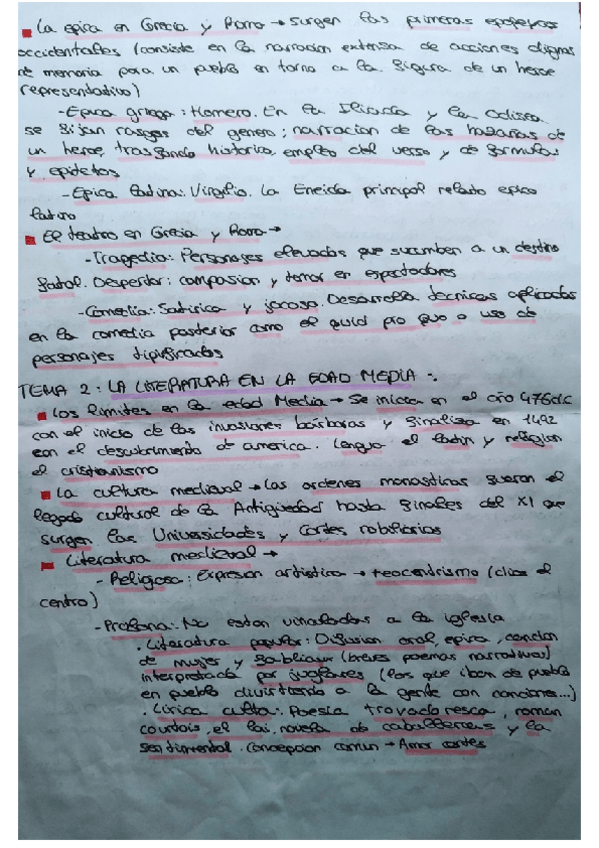 La epica en Grecia y Roma → surgen las primeras epopeyas
occidentales (consiste en la narracion extensa de acciones dignas
de memoria para un pueblo en torno a la figura de un heroe
representativo)
- Epica griega: Homero. En la Iliada y la Odisea
se fijan rasgos del genero: narracion de las hazañas de
un heroe, trasfondo historico, empleo del verso y de formulas
y epitetos
- Epica latina: Virgilio. La Eneida principal relato epico
latino
El teatro en Grecia y Roma →
- Tragedia: Personajes elevados que sucumben a un destino
fatal. Despertar: compasion y temor en espectadores
- Comedia: Satirica y jocosa. Desarrolla tecnicas aplicadas
en la comedia posterior como el quid pro quo o uso de
personajes tipificados
TEMA 2: LA LITERATURA EN LA EDAD MEDIA:
Los limites en la edad Media → Se inicia en el año 476dc
con el inicio de las invasiones barbaras y finaliza en 1492
con el descubrimiento de america. Lengua el latin y religion
el cristianismo
La cultura medieval → Las ordenes monasticas fueron el
legado cultural de la Antigüedad hasta finales del XI que
surgen las Universidades y Cortes nobiliarias
Literatura medieval →
- Religiosa: Expresion artistica → teocentrismo (dios el
centro)
- Profana: No estan vinculadas a la iglesia
. Literatura popular: Difusion oral, epica, cancion
de mujer y fabliaux (breves poemas narrativos)
interpretada por juglares (los que iban de pueblo
en pueblo divirtiendo a la gente con canciones...)
. Lirica culta: Poesia trovadoresca, roman
courtois, el lai, novela de caballerias y la
sentimental. Concepcion comun → Amor cortes